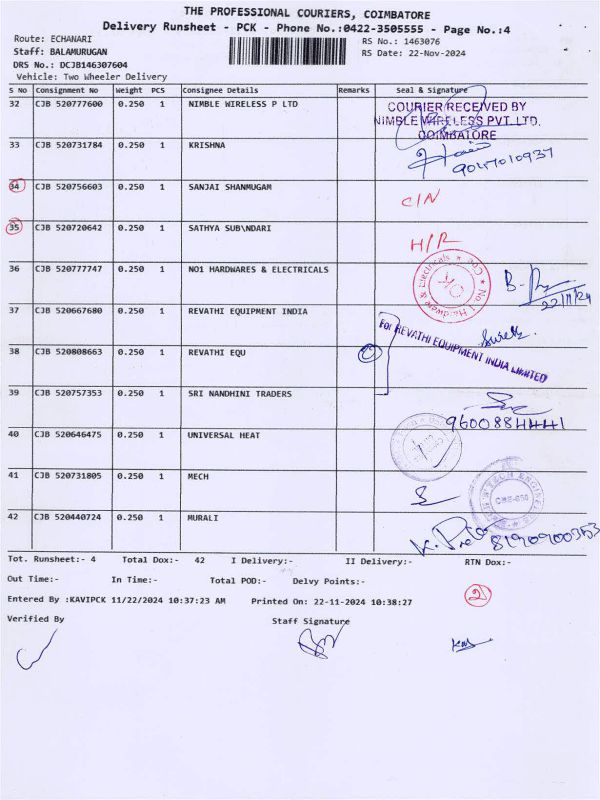 THE PROFESSIONAL COURIERS, COIMBATORE
Delivery Runsheet - PCK - Phone No.:0422-3505555 - Page No.:4
Route: ECHANARI
RS No.: 1463076
Staff: BALAMURUGAN
RS Date: 22-Nov-2024
DRS No.: DCJB146307604
Vehicle: Two Wheeler Delivery
S No Consignment No Weight PCS Consignee Details Remarks Seal & Signature
32 CJB 520777600 0.250 1 NIMBLE WIRELESS P LTD
COURIER RECEIVED BY
NIMBLE WIRELESS PVT. LTD.
COIMBATORE
33 CJB 520731784 0.250 1 KRISHNA
34 CJB 520756603 0.250 1 SANJAI SHANMUGAM
C/N
35 CJB 520720642 0.250 1 SATHYA SUB\NDARI
H/R
36 CJB 520777747 0.250 1 NO1 HARDWARES & ELECTRICALS
No.1 Hardware & Electricals
OK
22/11/24
37 CJB 520667680 0.250 1 REVATHI EQUIPMENT INDIA
For REVATHI EQUIPMENT INDIA LIMITED
38 CJB 520808663 0.250 1 REVATHI EQU
39 CJB 520757353 0.250 1 SRI NANDHINI TRADERS
9600884441
40 CJB 520646475 0.250 1 UNIVERSAL HEAT
41 CJB 520731805 0.250 1 MECH
42 CJB 520440724 0.250 1 MURALI
8190900353
Tot. Runsheet:- 4 Total Dox:- 42 I Delivery:- II Delivery:- RTN Dox:-
Out Time:- In Time:- Total POD:- Delvy Points:-
Entered By :KAVIPCK 11/22/2024 10:37:23 AM Printed On: 22-11-2024 10:38:27
2
Verified By Staff Signature